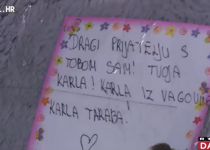 .HR
DRAGI PRIJATELJU S
TOBOM SAM! TVOJA
KARLA! KARLA IZ VAGOVINA
KARLA TARABA!
DA